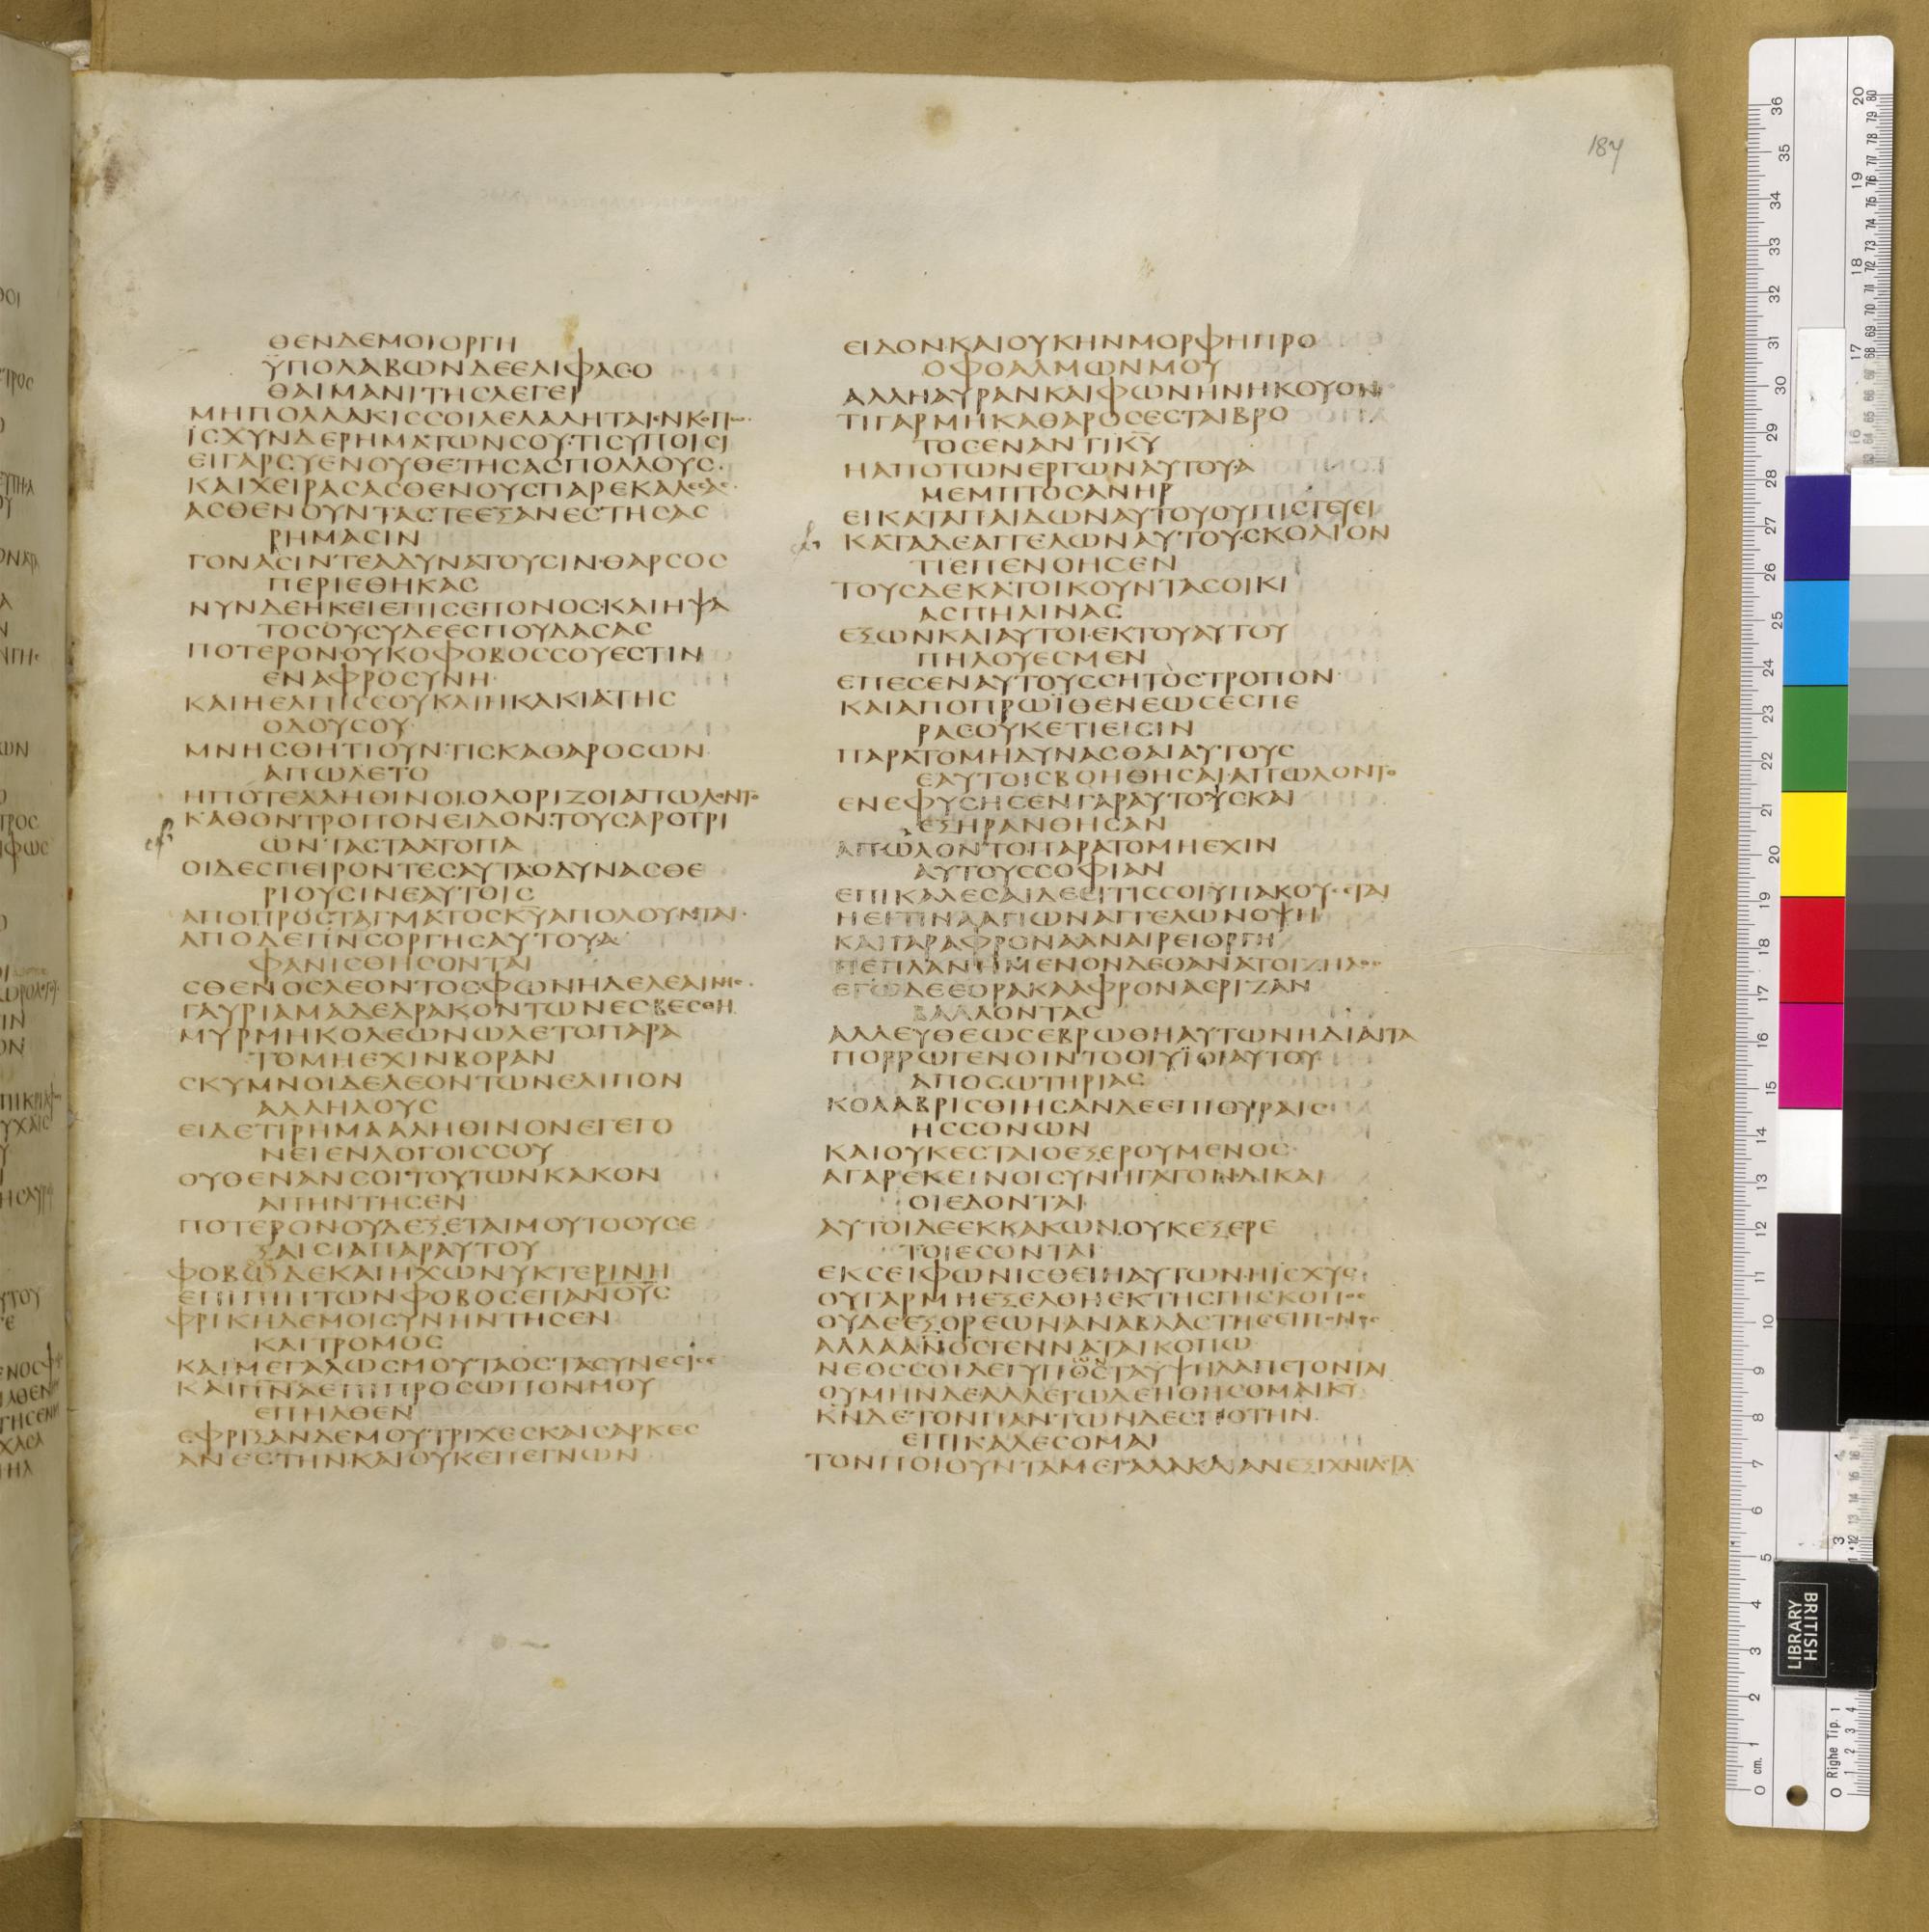 ΘΕΝΔΕΜΟΙΟΡΓΗ
ΫΠΟΛΑΒΩΝΔΕΕΛΙΦΑϹΟ
ΘΑΙΜΑΝΙΤΗϹΛΕΓΕΙ
ΜΗΠΟΛΛΑΚΙϹϹΟΙΛΕΛΑΛΗΤΑΙ·ΝΚ·Π
ΪϹΧΥΝΔΕΡΗΜΑΤΩΝϹΟΥ·ΤΙϹΥΠΟΙϹΙ
ΕΙΓΑΡϹΥΕΝΟΥΘΕΤΗϹΑϹΠΟΛΛΟΥϹ·
ΚΑΙΧΕΙΡΑϹΑϹΘΕΝΟΥϹΠΑΡΕΚΑΛΕϹΑϹ·
ΑϹΘΕΝΟΥΝΤΑϹΤΕΕΞΑΝΕϹΤΗϹΑϹ
ΡΗΜΑϹΙΝ
ΓΟΝΑϹΙΝΤΕΑΔΥΝΑΤΟΥϹΙΝ·ΘΑΡϹΟϹ
ΠΕΡΙΕΘΗΚΑϹ
ΝΥΝΔΕΗΚΕΙΕΠΙϹΕΠΟΝΟϹ·ΚΑΙΗΨΑ
ΤΟϹΟΥ·ϹΥΔΕΕϹΠΟΥΔΑϹΑϹ
ΠΟΤΕΡΟΝ·ΟΥΚΟΦΟΒΟϹϹΟΥΕϹΤΙΝ
ΕΝΑΦΡΟϹΥΝΗ·
ΚΑΙΗΕΛΠΙϹϹΟΥΚΑΙΗΚΑΚΙΑΤΗϹ
ΟΔΟΥϹΟΥ·
ΜΝΗϹΘΗΤΙΟΥΝ·ΤΙϹΚΑΘΑΡΟϹΩΝ
ΑΠΩΛΕΤΟ
ΗΠΟΤΕΑΛΗΘΙΝΟΙ·ΟΛΟΡΙΖΟΙΑΠΩΛΟΝΤΟ
ΚΑΘΟΝΤΡΟΠΟΝΕΙΔΟΝ·ΤΟΥϹΑΡΟΤΡΙ
ΩΝΤΑϹΤΑΑΤΟΠΑ
ΟΙΔΕϹΠΕΙΡΟΝΤΕϹΑΥΤΑ·ΟΔΥΝΑϹΘΕ
ΡΙΟΥϹΙΝΕΑΥΤΟΙϹ
ΑΠΟΠΡΟϹΤΑΓΜΑΤΟϹΚΥΑΠΟΛΟΥΝΤΑΙ·
ΑΠΟΔΕΠΝϹΟΡΓΗϹΑΥΤΟΥΑ
ΦΑΝΙϹΘΗϹΟΝΤΑΙ
ϹΘΕΝΟϹΛΕΟΝΤΟϹΦΩΝΗΔΕΛΕΑΙΝΗϹ
ΓΑΥΡΙΑΜΑΔΕΔΡΑΚΟΝΤΩΝΕϹΒΕϹΘΗ
ΜΥΡΜΗΚΟΛΕΩΝΩΛΕΤΟΠΑΡΑ
ΤΟΜΗΕΧΙΝΒΟΡΑΝ
ϹΚΥΜΝΟΙΔΕΛΕΟΝΤΩΝΕΛΙΠΟΝ
ΑΛΛΗΛΟΥϹ
ΕΙΔΕΤΙΡΗΜΑΑΛΗΘΙΝΟΝΕΓΕΓΟ
ΝΕΙΕΝΛΟΓΟΙϹϹΟΥ
ΟΥΘΕΝΑΝϹΟΙΤΟΥΤΩΝΚΑΚΟΝ
ΑΠΗΝΤΗϹΕΝ
ΠΟΤΕΡΟΝΟΥΔΕΞΕΤΑΙΜΟΥΤΟΟΥϹΕ
ΞΑΙϹΙΑΠΑΡΑΥΤΟΥ
ΦΟΒΩΔΕΚΑΙΗΧΩΝΥΚΤΕΡΙΝΗ
ΕΠΙΠΙΠΤΩΝΦΟΒΟϹΕΠΑΝΟΥϹ
ΦΡΙΚΗΔΕΜΟΙϹΥΝΗΝΤΗϹΕΝ
ΚΑΙΤΡΟΜΟϹ
ΚΑΙΜΕΓΑΛΩϹΜΟΥΤΑΟϹΤΑϹΥΝΕϹΙϹΕ
ΚΑΙΠΝΑΕΠΙΠΡΟϹΩΠΟΝΜΟΥ
ΕΠΗΛΘΕΝ
ΕΦΡΙΞΑΝΔΕΜΟΥΤΡΙΧΕϹΚΑΙϹΑΡΚΕϹ
ΑΝΕϹΤΗΝΚΑΙΟΥΚΕΠΕΓΝΩΝ
187
ΕΙΔΟΝΚΑΙΟΥΚΗΝΜΟΡΦΗΠΡΟ
ΟΦΘΑΛΜΩΝΜΟΥ
ΑΛΛΗΑΥΡΑΝΚΑΙΦΩΝΗΝΗΚΟΥΟΝ
ΤΙΓΑΡΜΗΚΑΘΑΡΟϹΕϹΤΑΙΒΡΟ
ΤΟϹΕΝΑΝΤΙΚΥ
ΗΑΠΟΤΩΝΕΡΓΩΝΑΥΤΟΥΑ
ΜΕΜΠΤΟϹΑΝΗΡ
ΕΙΚΑΤΑΠΑΙΔΩΝΑΥΤΟΥΟΥΠΙϹΤΕΥΕΙ
ΚΑΤΑΔΕΑΓΓΕΛΩΝΑΥΤΟΥ·ϹΚΟΛΙΟΝ
ΤΙΕΠΕΝΟΗϹΕΝ
ΤΟΥϹΔΕΚΑΤΟΙΚΟΥΝΤΑϹΟΙΚΙ
ΑϹΠΗΛΙΝΑϹ
ΕΞΩΝΚΑΙΑΥΤΟΙ·ΕΚΤΟΥΑΥΤΟΥ
ΠΗΛΟΥΕϹΜΕΝ
ΕΠΕϹΕΝΑΥΤΟΥϹϹΗΤΟϹΤΡΟΠΟΝ·
ΚΑΙΑΠΟΠΡΩΪΘΕΝΕΩϹΕϹΠΕ
ΡΑϹΟΥΚΕΤΙΕΙϹΙΝ
ΠΑΡΑΤΟΜΗΔΥΝΑϹΘΑΙΑΥΤΟΥϹ
ΕΑΥΤΟΙϹΒΟΗΘΗϹΑΙ·ΑΠΩΛΟΝΤΟ
ΕΝΕΦΥϹΗϹΕΝΓΑΡΑΥΤΟΥϹΚΑΙ
ΕΞΗΡΑΝΘΗϹΑΝ
ΑΠΩΛΟΝΤΟΠΑΡΑΤΟΜΗΕΧΙΝ
ΑΥΤΟΥϹϹΟΦΙΑΝ
ΕΠΙΚΑΛΕϹΑΙΔΕΕΙΤΙϹϹΟΙΫΠΑΚΟΥϹΕΤΑΙ
ΗΕΙΤΙΝΑΑΓΙΩΝΑΓΓΕΛΩΝΟΨΗ
ΚΑΙΓΑΡΑΦΡΟΝΑΑΝΑΙΡΕΙΟΡΓΗ
ΠΕΠΛΑΝΗΜΕΝΟΝΔΕΘΑΝΑΤΟΙΖΗΛΟϹ
ΕΓΩΔΕΕΟΡΑΚΑΑΦΡΟΝΑϹΡΙΖΑΝ
ΒΑΛΛΟΝΤΑϹ
ΑΛΛΕΥΘΕΩϹΕΒΡΩΘΗΑΥΤΩΝΗΔΙΑΙΤΑ
ΠΟΡΡΩΓΕΝΟΙΝΤΟΟΙΥΪΟΙΑΥΤΟΥ·
ΑΠΟϹΩΤΗΡΙΑϹ
ΚΟΛΑΒΡΙϹΘΙΗϹΑΝΔΕΕΠΙΘΥΡΑΙϹ
ΗϹϹΟΝΩΝ
ΚΑΙΟΥΚΕϹΤΑΙΟΕΞΕΡΟΥΜΕΝΟϹ·
ΑΓΑΡΕΚΕΙΝΟΙϹΥΝΗΓΑΓΟΝΔΙΚΑΙ
ΟΙΕΔΟΝΤΑΙ
ΑΥΤΟΙΔΕΕΚΚΑΚΩΝ·ΟΥΚΕΞΕΡΕ
ΤΟΙΕϹΟΝΤΑΙ
ΕΚϹΕΙΦΩΝΙϹΘΕΙΗΑΥΤΩΝ·ΗΪϹΧΥϹ
ΟΥΓΑΡΜΗΕΞΕΛΘΗΕΚΤΗϹΓΗϹΚΟΠΟϹ
ΟΥΔΕΕΞΟΡΕΩΝΑΝΑΒΛΑϹΤΗϹΕΙΠΟΝΟϹ
ΑΛΛΑΑΝΟϹΓΕΝΝΑΤΑΙΚΟΠΩ
ΝΕΟϹϹΟΙΔΕΓΥΠΟϹΤΑΥΨΗΛΑΠΕΤΟΝΤΑΙ
ΟΥΜΗΝΔΕΑΛΛΕΓΩΔΕΗΘΗϹΟΜΑΙΚΥ
ΚΝΔΕΤΟΝΠΑΝΤΩΝΔΕϹΠΟΤΗΝ
ΕΠΙΚΑΛΕϹΟΜΑΙ
ΤΟΝΠΟΙΟΥΝΤΑΜΕΓΑΛΑΚΑΙΑΝΕΞΙΧΝΙΑϹΤΑ
BRITISH
LIBRARY
cm.
Righe Tip.